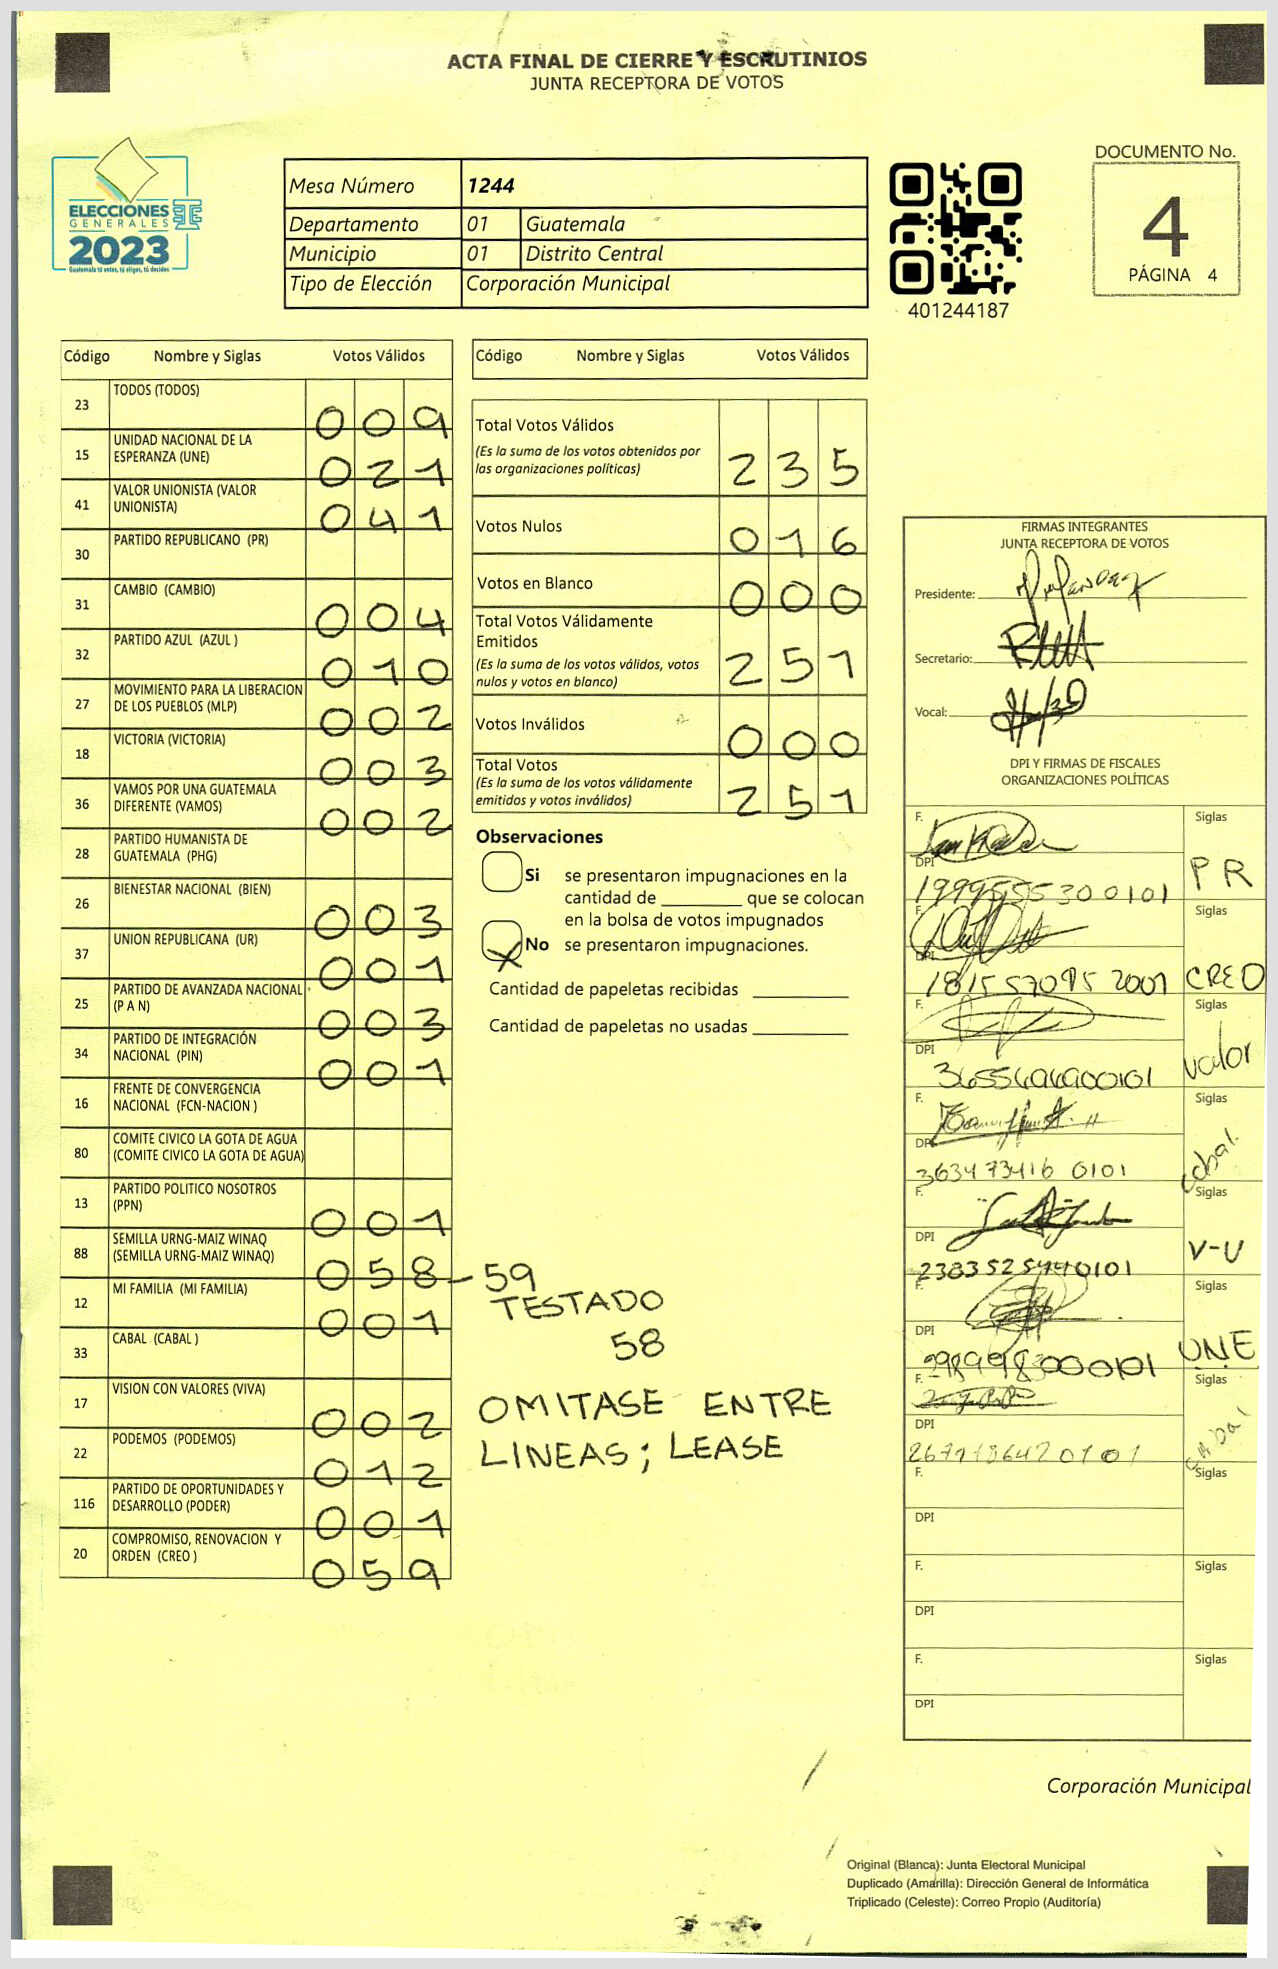 ACTA FINAL DE CIERRE Y ESCRUTINIOS
JUNTA RECEPTORA DE VOTOS
ELECCIONES
GENERALES
2023
Guatemala tú votes, tú eliges, tú decides
Mesa Número 1244
Departamento 01 Guatemala
Municipio 01 Distrito Central
Tipo de Elección Corporación Municipal
401244187
DOCUMENTO No.
4
PÁGINA 4
Código Nombre y Siglas Votos Válidos
23 TODOS (TODOS) 009
15 UNIDAD NACIONAL DE LA ESPERANZA (UNE) 021
41 VALOR UNIONISTA (VALOR UNIONISTA) 041
30 PARTIDO REPUBLICANO (PR)
31 CAMBIO (CAMBIO) 004
32 PARTIDO AZUL (AZUL ) 010
27 MOVIMIENTO PARA LA LIBERACION DE LOS PUEBLOS (MLP) 002
18 VICTORIA (VICTORIA) 003
36 VAMOS POR UNA GUATEMALA DIFERENTE (VAMOS) 002
28 PARTIDO HUMANISTA DE GUATEMALA (PHG)
26 BIENESTAR NACIONAL (BIEN) 003
37 UNION REPUBLICANA (UR) 001
25 PARTIDO DE AVANZADA NACIONAL (P A N) 003
34 PARTIDO DE INTEGRACIÓN NACIONAL (PIN) 001
16 FRENTE DE CONVERGENCIA NACIONAL (FCN-NACION )
80 COMITE CIVICO LA GOTA DE AGUA (COMITE CIVICO LA GOTA DE AGUA)
13 PARTIDO POLITICO NOSOTROS (PPN) 001
88 SEMILLA URNG-MAIZ WINAQ (SEMILLA URNG-MAIZ WINAQ) 058 - 59
12 MI FAMILIA (MI FAMILIA) 001
33 CABAL (CABAL )
17 VISION CON VALORES (VIVA) 002
22 PODEMOS (PODEMOS) 012
116 PARTIDO DE OPORTUNIDADES Y DESARROLLO (PODER) 001
20 COMPROMISO, RENOVACION Y ORDEN (CREO ) 059
Código Nombre y Siglas Votos Válidos
Total Votos Válidos 235
(Es la suma de los votos obtenidos por
las organizaciones políticas)
Votos Nulos 016
Votos en Blanco 000
Total Votos Válidamente
Emitidos 251
(Es la suma de los votos válidos, votos
nulos y votos en blanco)
Votos Inválidos 000
Total Votos 251
(Es la suma de los votos válidamente
emitidos y votos inválidos)
Observaciones
Si se presentaron impugnaciones en la
cantidad de ________ que se colocan
en la bolsa de votos impugnados
X No se presentaron impugnaciones.
Cantidad de papeletas recibidas
Cantidad de papeletas no usadas
TESTADO
58
OMITASE ENTRE
LINEAS; LEASE
FIRMAS INTEGRANTES
JUNTA RECEPTORA DE VOTOS
Presidente:
Secretario:
Vocal:
DPI Y FIRMAS DE FISCALES
ORGANIZACIONES POLÍTICAS
F. Siglas
DPI PR
F. Siglas
DPI CREO
F. Siglas
DPI Valor
F. Siglas
DPI 363473416 0101
F. Siglas
DPI 2383525440101 V-U
F. Siglas
DPI UNE
F. Siglas
DPI
F. Siglas
DPI
F. Siglas
DPI
F. Siglas
DPI
Corporación Municipal
Original (Blanca): Junta Electoral Municipal
Duplicado (Amarilla): Dirección General de Informática
Triplicado (Celeste): Correo Propio (Auditoría)